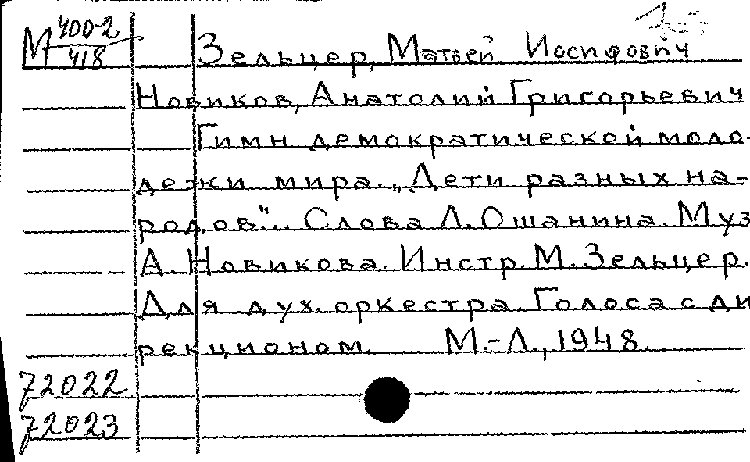 М 400-2/418
Зельцер, Матвей Иосифович
Новиков, Анатолий Григорьевич
Гимн демократической моло-
дежи мира. „Дети разных на-
родов". Слова Л. Ошанина. Муз
А. Новикова. Инстр М. Зельцер.
Для дух. оркестра. Голоса с ди
рекционом. М.-Л., 1948
72022
72023